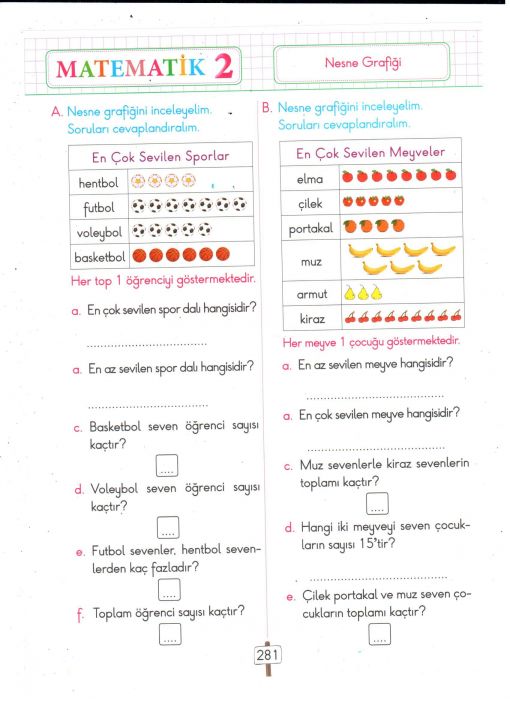 MATEMATİK 2
Nesne Grafiği
A. Nesne grafiğini inceleyelim.
Soruları cevaplandıralım.
En Çok Sevilen Sporlar
hentbol
futbol
voleybol
basketbol
Her top 1 öğrenciyi göstermektedir.
a. En çok sevilen spor dalı hangisidir?
........................................
a. En az sevilen spor dalı hangisidir?
........................................
c. Basketbol seven öğrenci sayısı
kaçtır?
....
d. Voleybol seven öğrenci sayısı
kaçtır?
....
e. Futbol sevenler, hentbol seven-
lerden kaç fazladır?
....
f. Toplam öğrenci sayısı kaçtır?
....
B. Nesne grafiğini inceleyelim.
Soruları cevaplandıralım.
En Çok Sevilen Meyveler
elma
çilek
portakal
muz
armut
kiraz
Her meyve 1 çocuğu göstermektedir.
a. En az sevilen meyve hangisidir?
........................................
a. En çok sevilen meyve hangisidir?
........................................
c. Muz sevenlerle kiraz sevenlerin
toplamı kaçtır?
....
d. Hangi iki meyveyi seven çocuk-
ların sayısı 15'tir?
........................................
e. Çilek portakal ve muz seven ço-
cukların toplamı kaçtır?
....
281